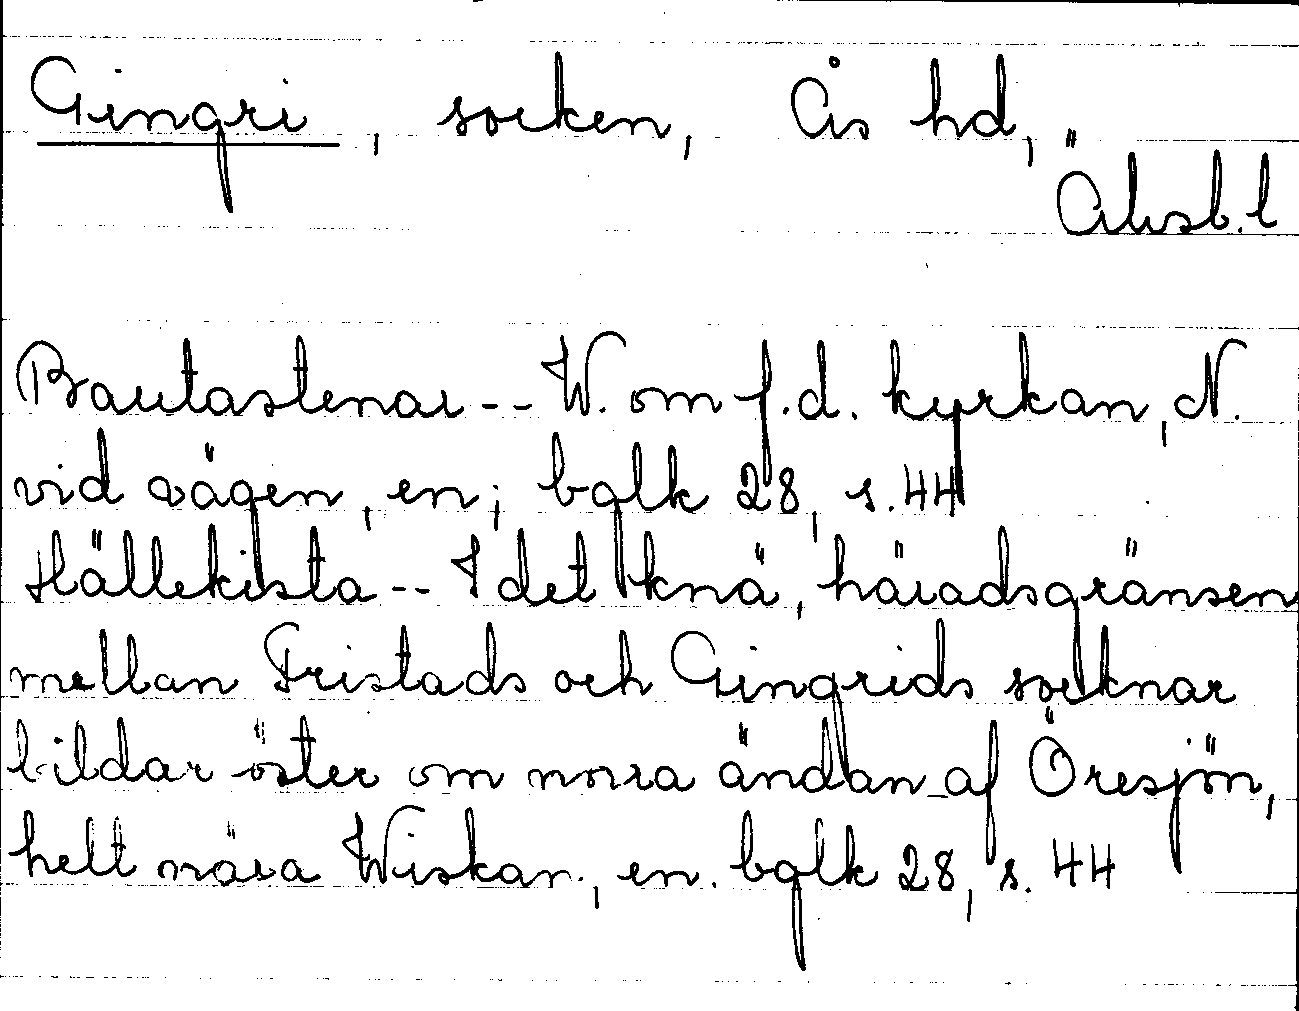 Gingri, socken, Ås hd,
Älvsb. l
Bautastenar -- W. om f.d. kyrkan, N.
vid vägen, en; bglk 28, s. 44
Hällekista -- I det knä, häradsgränsen
mellan Fristads och Gingrids socknar
bildar öster om norra ändan af Öresjön,
helt nära Wiskan, en. bglk 28, s. 44